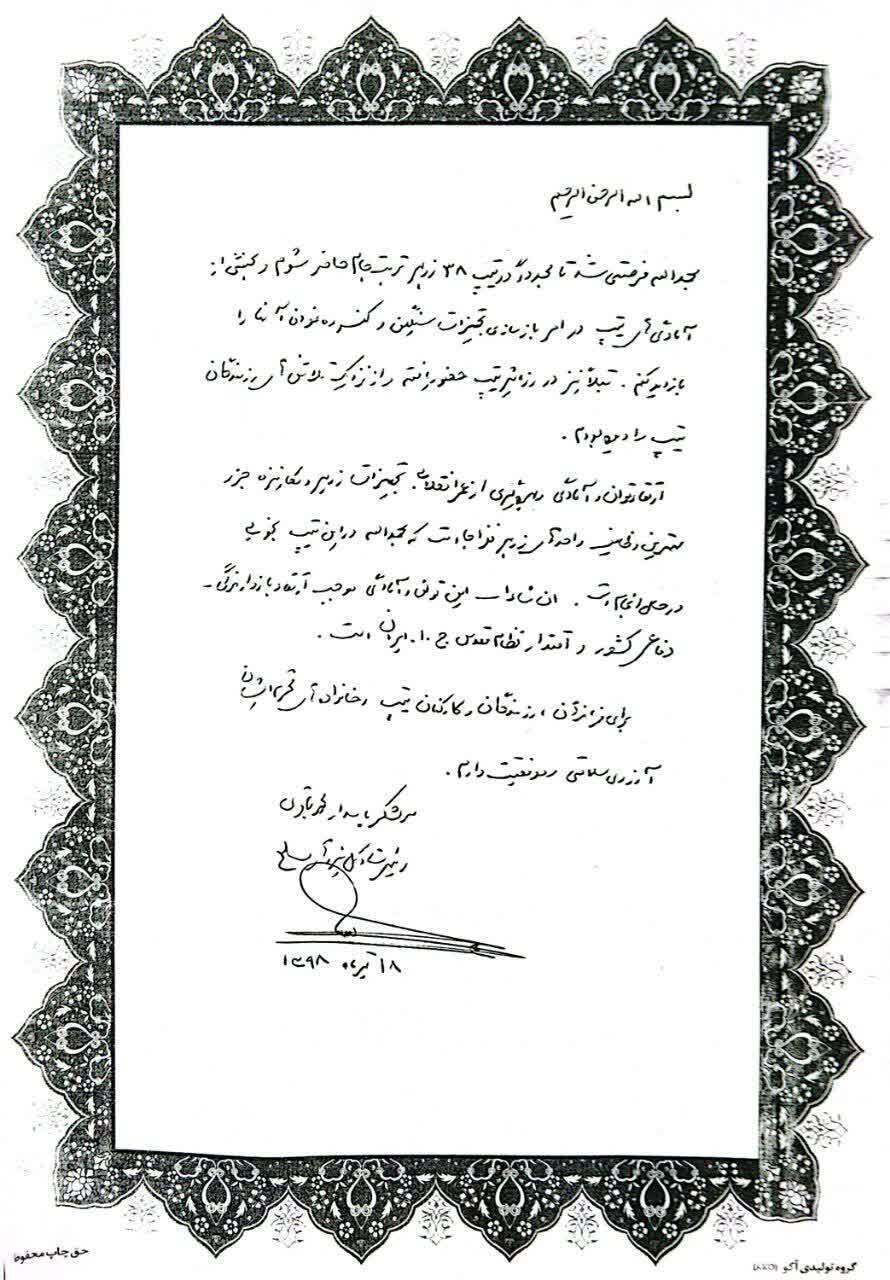 بسم اله الرحمن الرحیم
بحمدالله فرصتی شد تا مجدداً در تیپ ۳۸ زرهی تربت جام حاضر شوم و بخشی از
آمادگی‌های تیپ در امر بازسازی تجهیزات سنگین و گسترده توان آنها را
بازدید کنم. قبلاً نیز در رزمایش تیپ حضور یافته و از نزدیک تلاش‌های رزمندگان
تیپ را دیده بودم.
ارتقاء توان و آمادگی و بهره‌گیری از عمر انقلابی تجهیزات زرهی و مکانیزه جزو
مهمترین وظایف واحدهای زرهی نزاجا است که بحمدالله در این تیپ بخوبی
در حال انجام است. ان شاءالله این توان و آمادگی موجب ارتقاء بازدارندگی
دفاعی کشور و اقتدار نظام مقدس ج.ا.ایران است.
برای فرماندهان، رزمندگان و کارکنان تیپ و خانواده‌های محترم ایشان
آرزوی سلامتی و موفقیت دارم.
سرلشکر پاسدار محمد باقری
رئیس ستاد کل نیروهای مسلح
۱۸ تیرماه ۱۳۹۸
حق چاپ محفوظ
گروه تولیدی آکو (AKO)